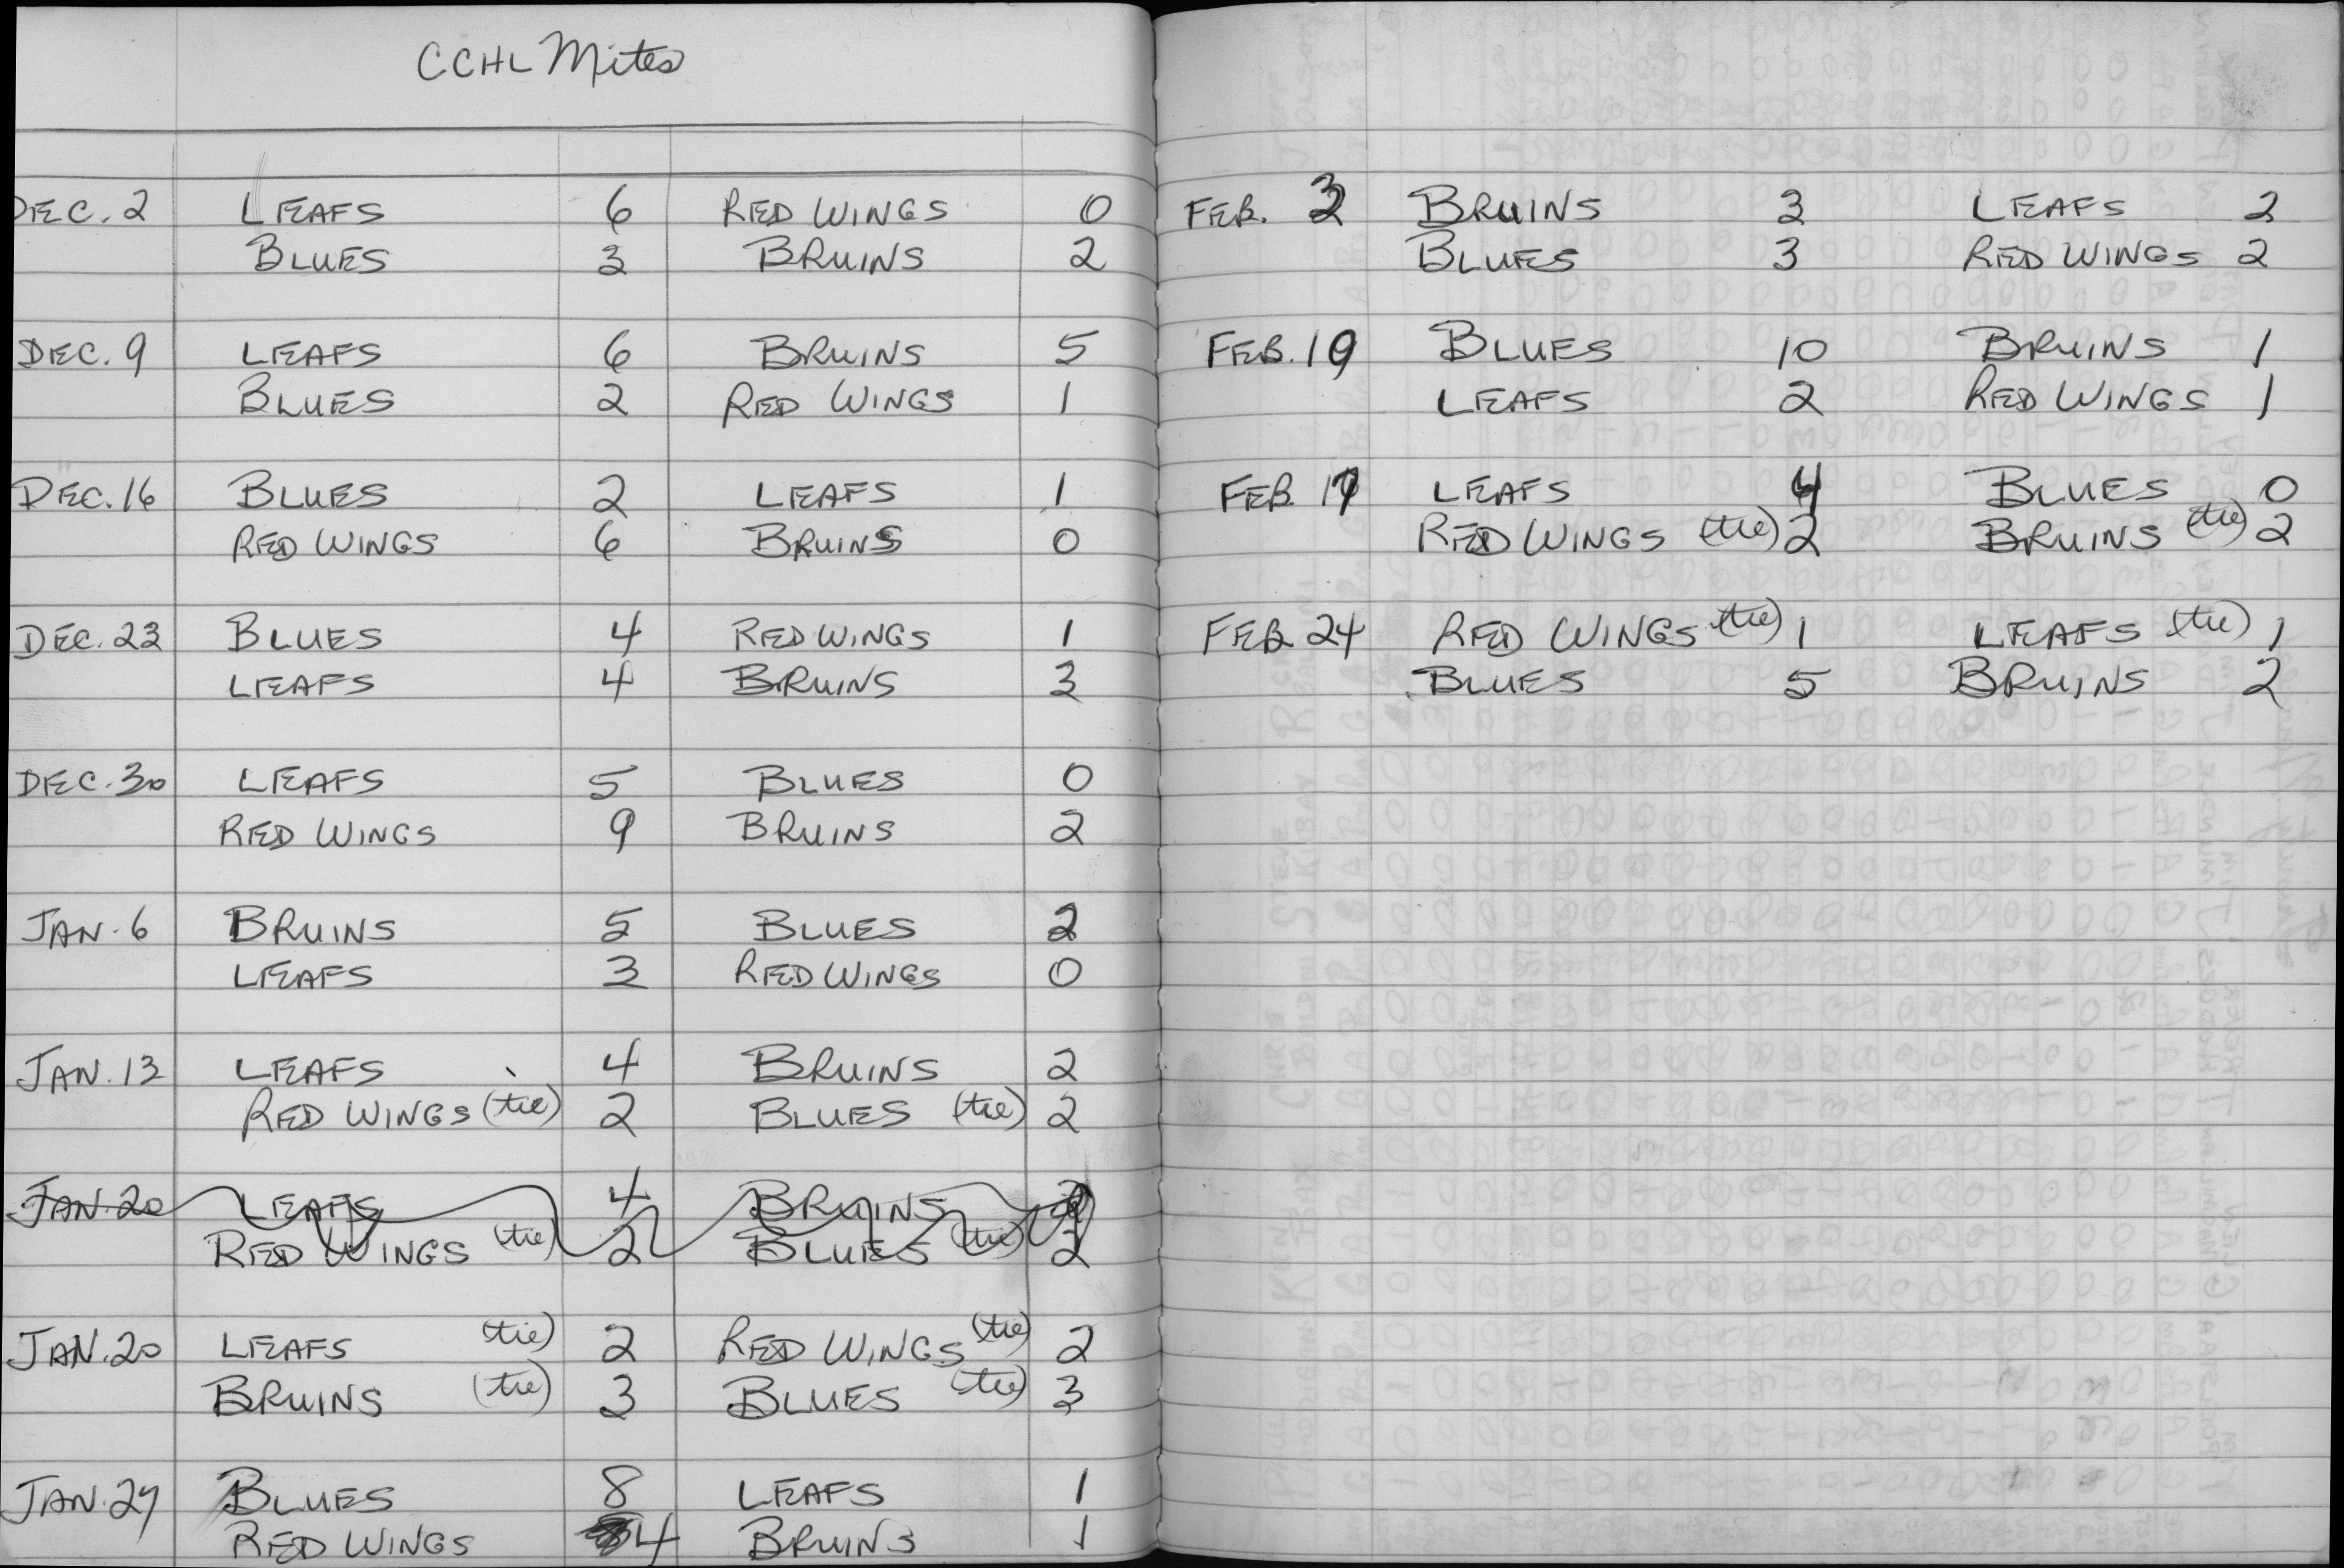 CCHL Mites
DEC. 2 LEAFS 6 RED WINGS 0
BLUES 3 BRUINS 2
DEC. 9 LEAFS 6 BRUINS 5
BLUES 2 RED WINGS 1
DEC. 16 BLUES 2 LEAFS 1
RED WINGS 6 BRUINS 0
DEC. 23 BLUES 4 RED WINGS 1
LEAFS 4 BRUINS 3
DEC. 30 LEAFS 5 BLUES 0
RED WINGS 9 BRUINS 2
JAN. 6 BRUINS 5 BLUES 2
LEAFS 3 RED WINGS 0
JAN. 13 LEAFS 4 BRUINS 2
RED WINGS (tie) 2 BLUES (tie) 2
JAN. 20 LEAFS 4 BRUINS
RED WINGS (tie) 2 BLUES (tie) 2
JAN. 20 LEAFS (tie) 2 RED WINGS (tie) 2
BRUINS (tie) 3 BLUES (tie) 3
JAN. 27 BLUES 8 LEAFS 1
RED WINGS 4 BRUINS 1
FEB. 3 BRUINS 3 LEAFS 2
BLUES 3 RED WINGS 2
FEB. 10 BLUES 10 BRUINS 1
LEAFS 2 RED WINGS 1
FEB. 17 LEAFS 4 BLUES 0
RED WINGS (tie) 2 BRUINS (tie) 2
FEB. 24 RED WINGS (tie) 1 LEAFS (tie) 1
BLUES 5 BRUINS 2